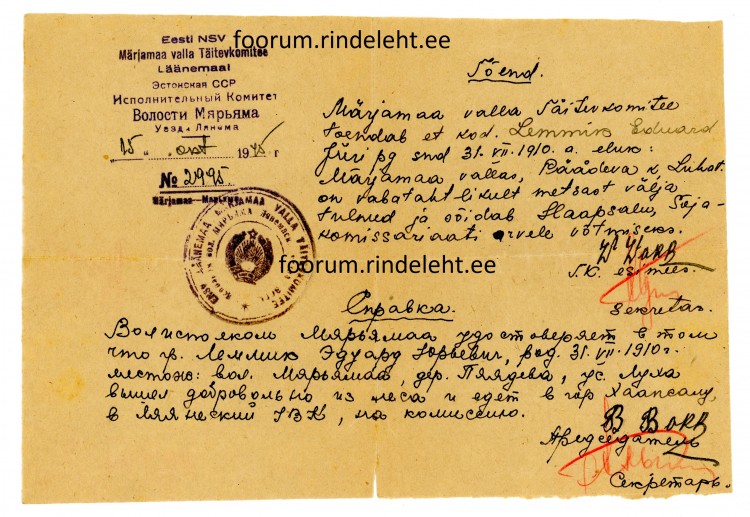 foorum.rindeleht.ee
Eesti NSV
Märjamaa valla Täitevkomitee
Läänemaal
Эстонская ССР
Исполнительный Комитет
Волости Мярьяма
Уезда Лянема
15 " окт 1945 г
№ 2995
Märjamaa—Марьямаа
Tõend.
Märjamaa valla Täitevkomitee
tõendab et kod. Lemmik Eduard
Jüri pg snd 31. VII. 1910. a. eluk:
Märjamaa vallas, Päädeva k, Luhot.
on vabatahtlikult metsast välja
tulnud ja sõidab Haapsalu, Sõja-
komissariaati arvele võtmiseks.
T.K. esimees.
Sekretär.
foorum.rindeleht.ee
Справка.
Волисполком Мярьямаа удостоверяет в том
что гр. Леммик Эдуард Юрьевич, род. 31. VII. 1910 г.
местож: вол. Мярьямаа, дер. Пяядева, ус. Луха
вышел добровольно из леса и едет в гор Хаапсалу,
в Ляянеский УВК, на комиссию.
В Вокк
Председатель
Секретарь.